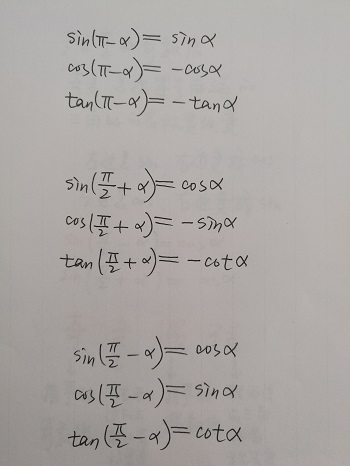 sin(π-α)= sinα
cos(π-α)= -cosα
tan(π-α)= -tanα
sin(π/2+α)=cosα
cos(π/2+α)= -sinα
tan(π/2+α)= -cotα
sin(π/2-α)= cosα
cos(π/2-α)= sinα
tan(π/2-α)=cotα